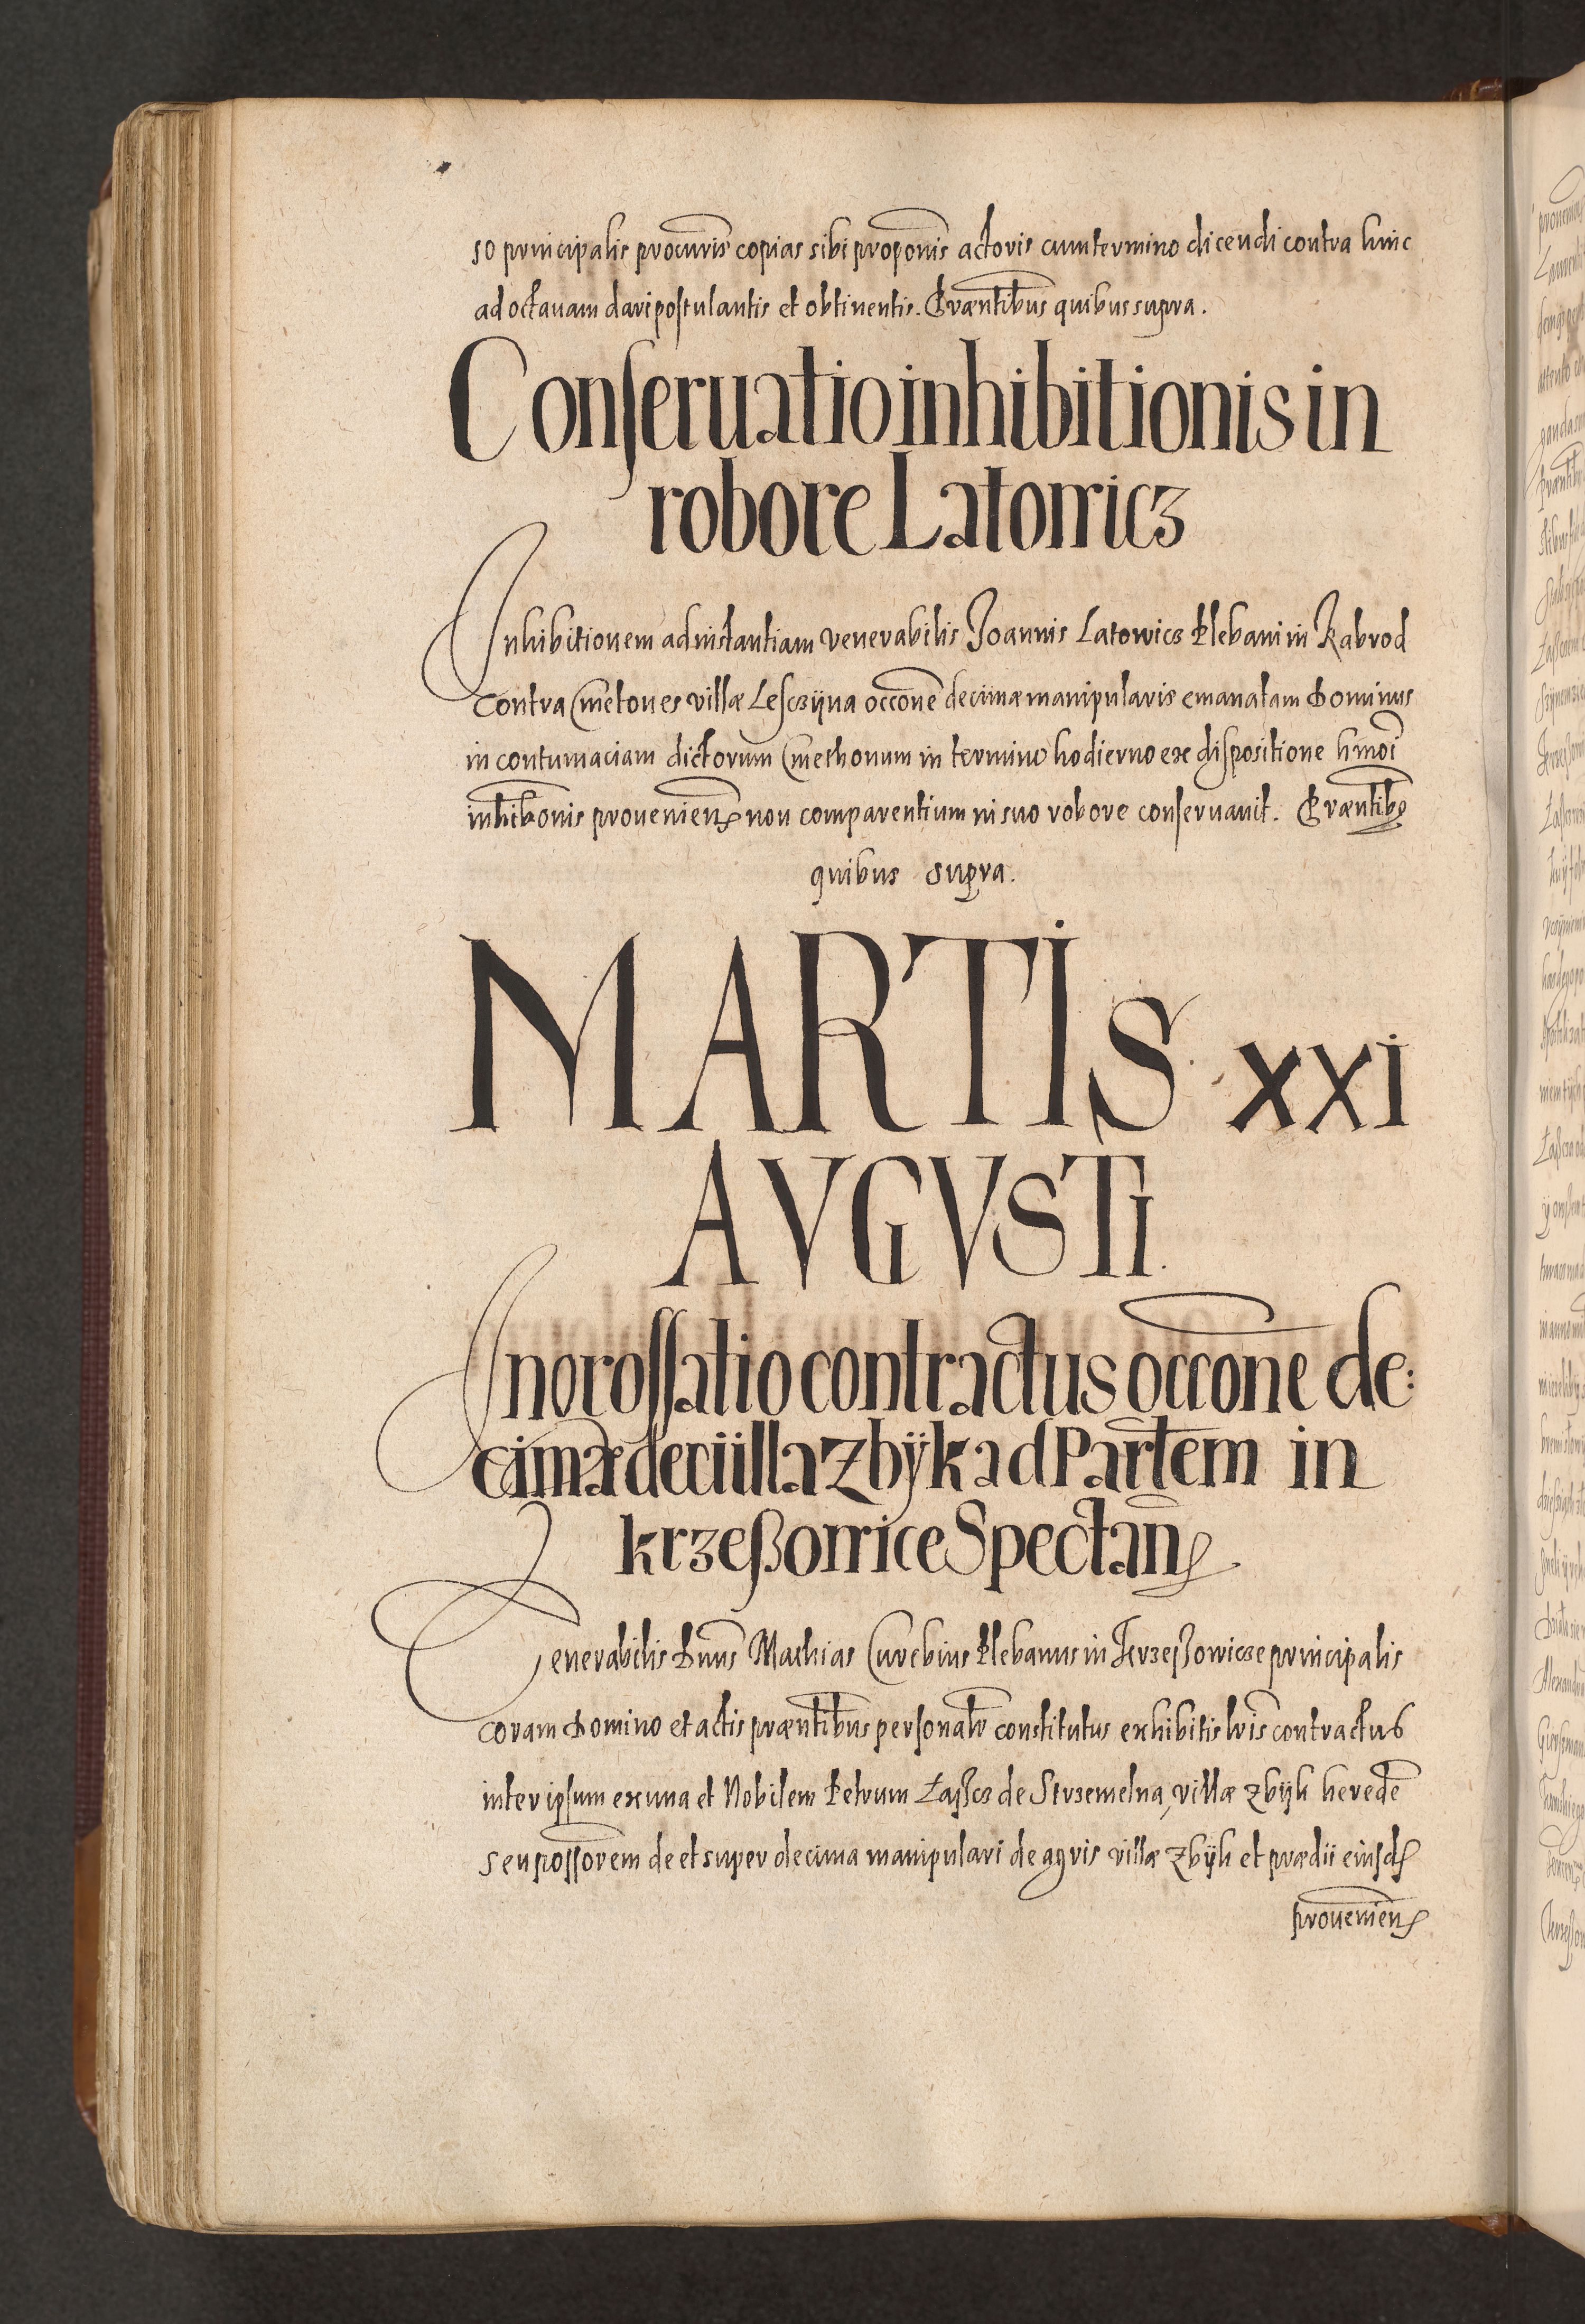 so principalis procuris copias sibi proponis actoris cum termino dicendi contra hinc
ad octauam dari postulantis et obtinentis. Præntibus quibus supra.
Conseruatio inhibitionis in
robore Latowicz
Inhibitionem ad instantiam venerabilis Joannis Latowicz Plebani in Kabrod
contra Cmetones villæ Lesczÿna occone decimæ manipularis emanatam Dominus
in contumaciam dictorum Cmethonum in termino hodierno ex dispositione hmoi
inhibonis prouenien non comparentium in suo robore conseruauit. Præntibq
quibus supra.
MARTIS XXI
AVGVSTi.
Inorossatio contractus occone de:
cimæ de villa Zbÿk ad Partem in
krzeßowice Spectan
Venerabilis Dnus Mathias Curebius Plebanus in Krzeßowicze principalis
coram Domino et actis præntibus personalr constitutus exhibitis lris contractus
inter ipsum ex una et Nobilem Petrum Łaßcz de Strzemelna, villæ Zbÿk herede
seu possorem de et super decima manipulari de agris villæ Zbÿk et prædii eiusd
prouenien